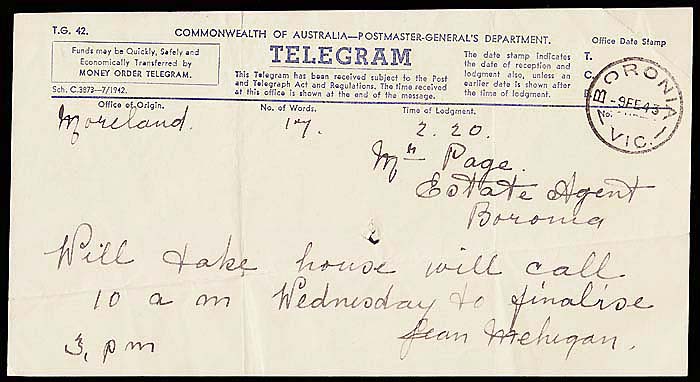 T.G. 42.
COMMONWEALTH OF AUSTRALIA—POSTMASTER-GENERAL'S DEPARTMENT.
Office Date Stamp
Funds may be Quickly, Safely and
Economically Transferred by
MONEY ORDER TELEGRAM.
Sch. C.3873—7/1942.
TELEGRAM
This Telegram has been received subject to the Post
and Telegraph Act and Regulations. The time received
at this office is shown at the end of the message.
The date stamp indicates
the date of reception and
lodgment also, unless an
earlier date is shown after
the time of lodgment.
T.
C.
No.
BORONIA
-9FE43
VIC.
Office of Origin.
No. of Words.
Time of Lodgment.
Moreland.
17.
2.20.
Mr Page.
Estate Agent
Boronia
Will take house will call
10 a m Wednesday to finalise
3, pm
Jean Mehigan.